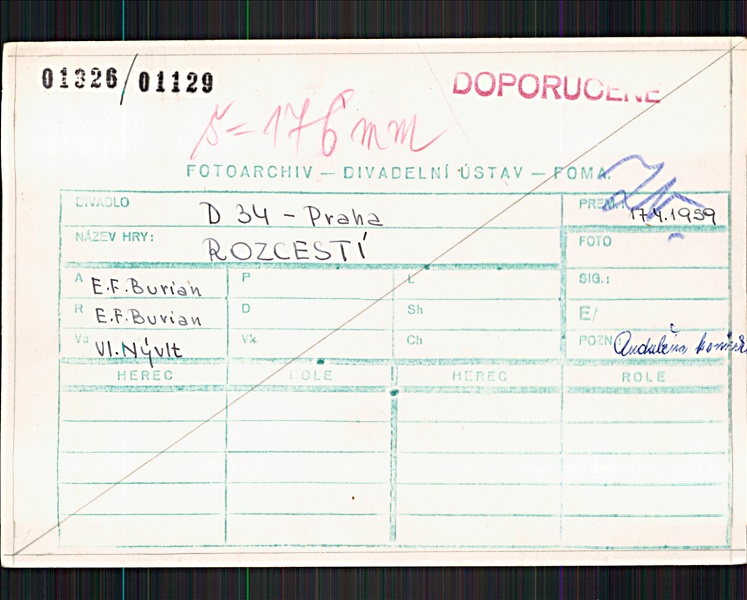 01326/01129
DOPORUČENĚ
š = 176 mm
FOTOARCHIV — DIVADELNÍ ÚSTAV — FOMA
DIVADLO D 34 – Praha PREM.: 17.4.1959
NÁZEV HRY: ROZCESTÍ FOTO
A E.F.Burian P L SIG.:
R E.F.Burian D Sh E/
Vl.Nývlt Vk Ch POZN
HEREC ROLE HEREC ROLE